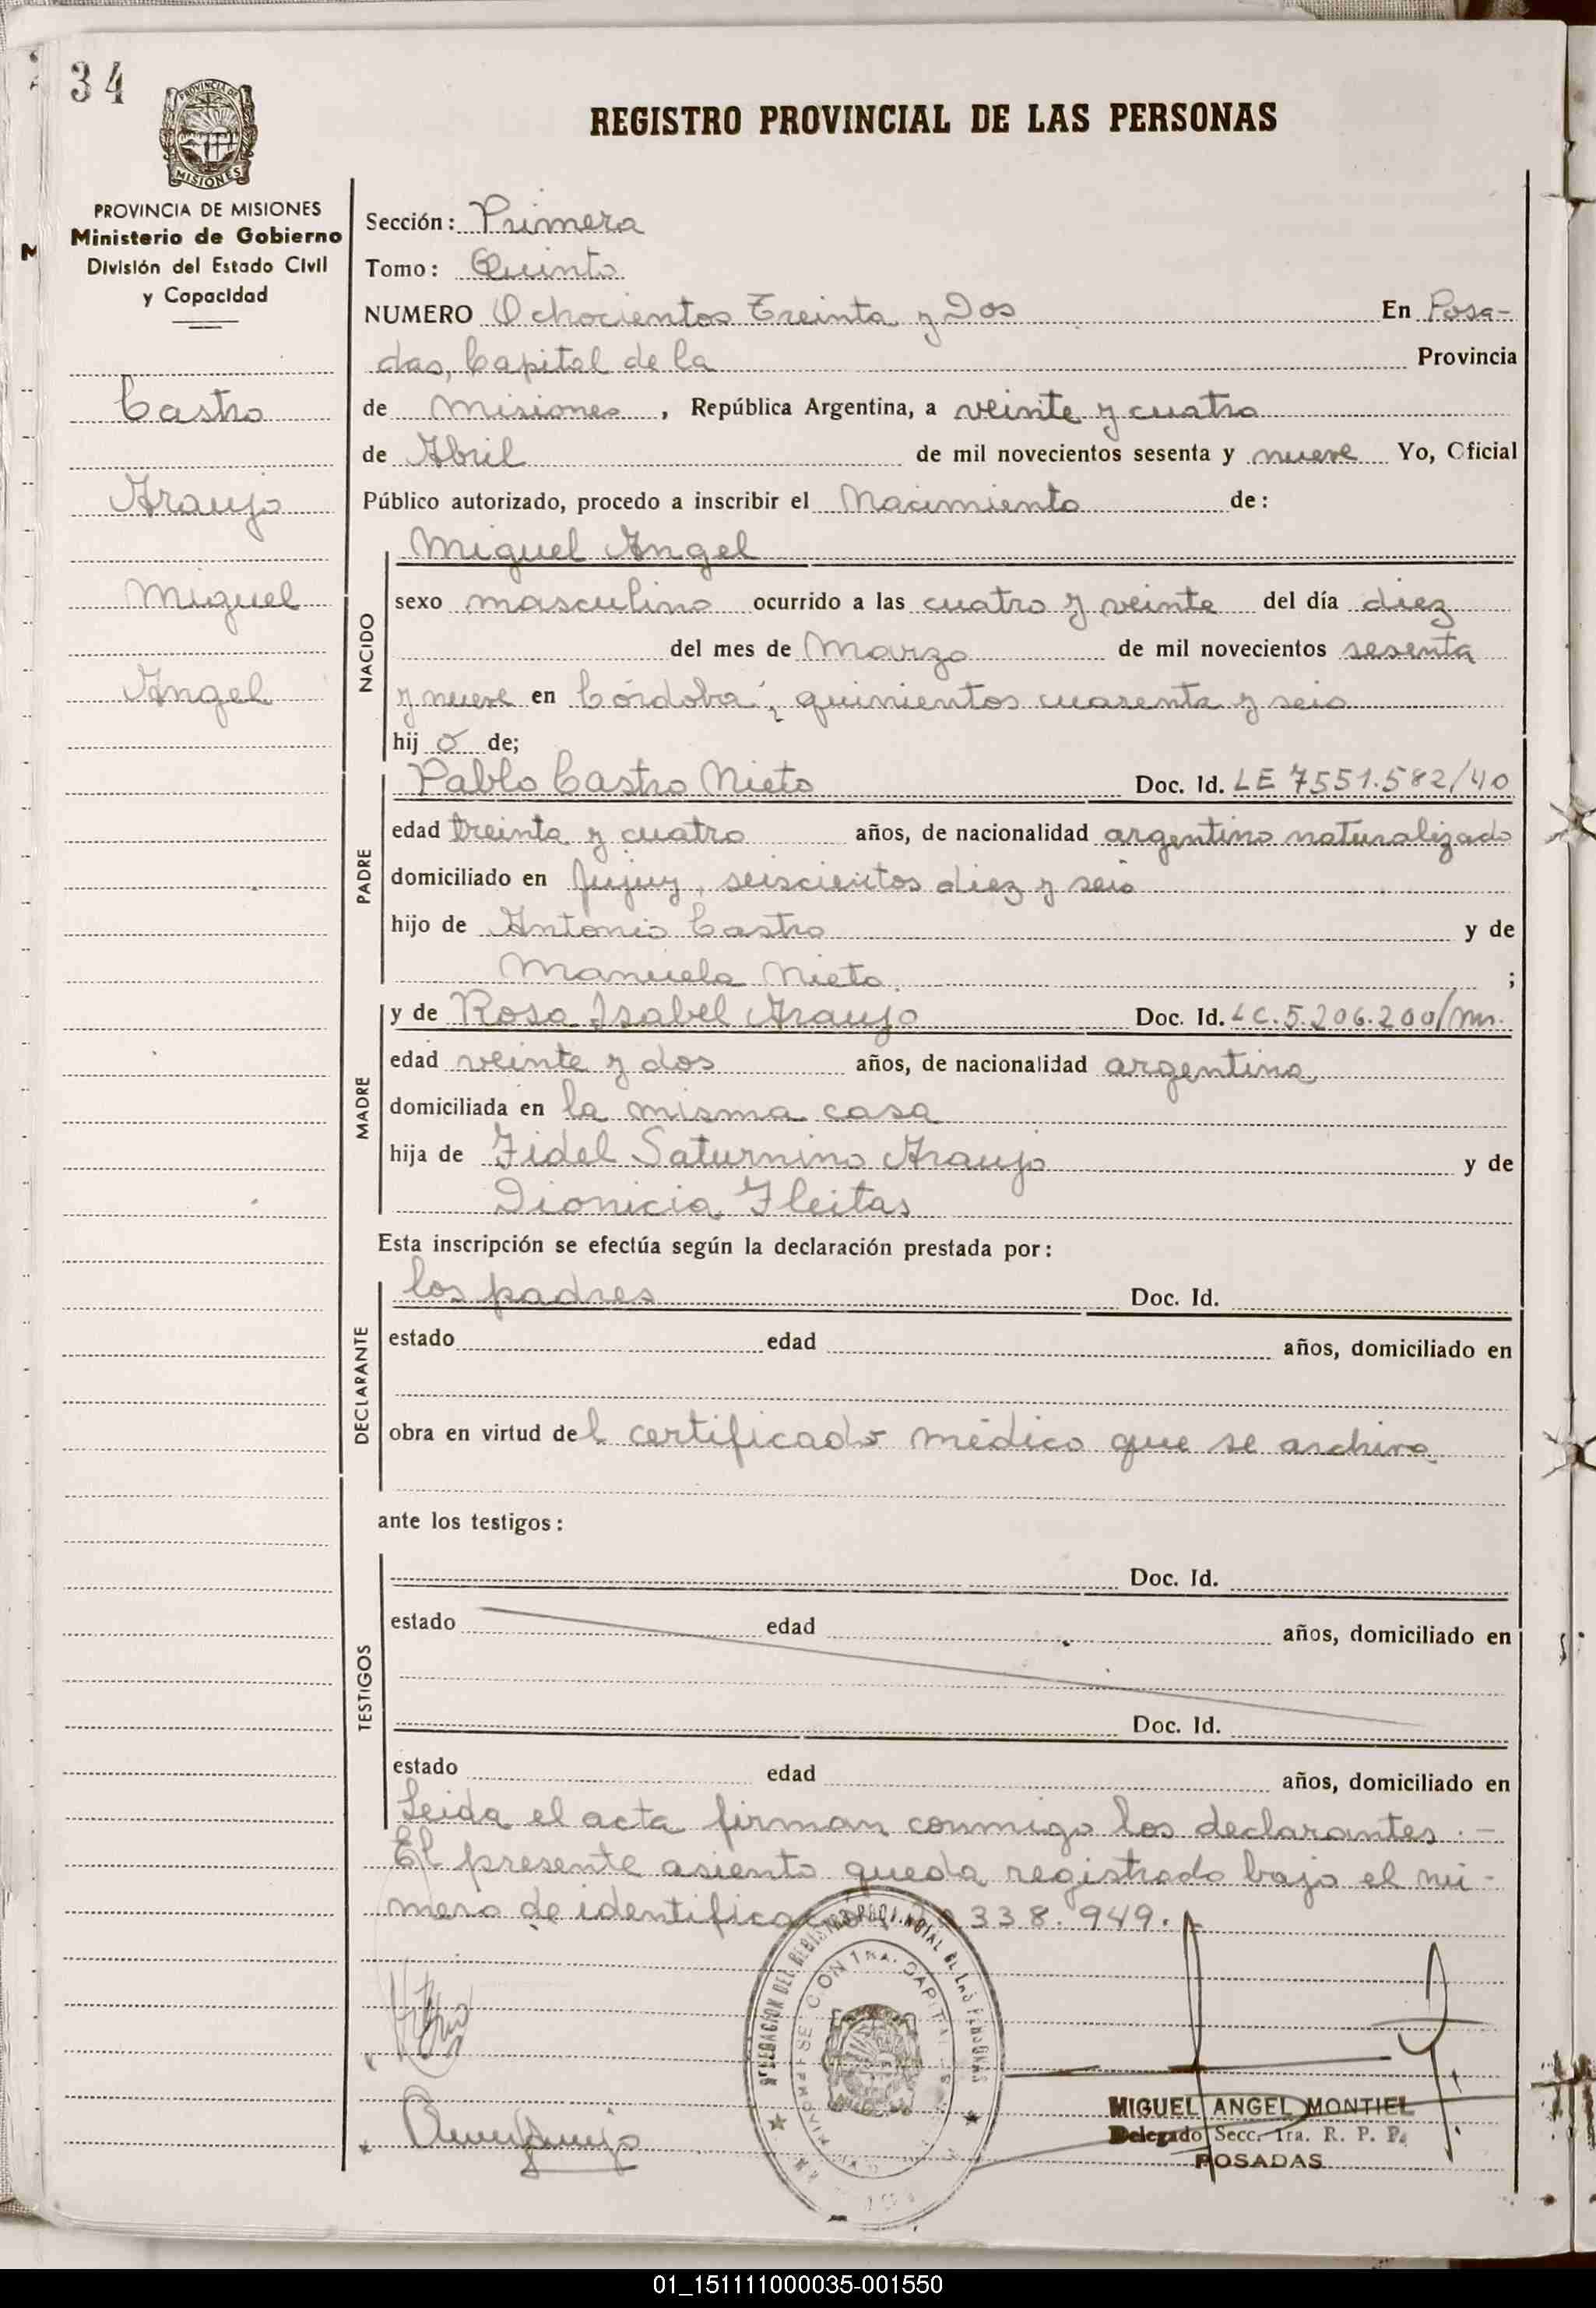 34
PROVINCIA DE MISIONES
Ministerio de Gobierno
División del Estado Civil
y Capacidad
Castro
Araujo
Miguel
Angel
REGISTRO PROVINCIAL DE LAS PERSONAS
Sección: Primera
Tomo: Quinto
NUMERO Ochocientos Treinta y Dos En Posa-
das, Capital de la Provincia
de Misiones, República Argentina, a veinte y cuatro
de Abril de mil novecientos sesenta y nueve Yo, Oficial
Público autorizado, procedo a inscribir el Nacimiento de:
NACIDO
Miguel Angel
sexo masculino ocurrido a las cuatro y veinte del día diez
del mes de Marzo de mil novecientos sesenta
y nueve en Córdoba, quinientos cuarenta y seis
hijo de;
PADRE
Pablo Castro Nieto Doc. Id. LE 7551.582/40
edad treinta y cuatro años, de nacionalidad argentino naturalizado
domiciliado en Jujuy, seiscientos diez y seis
hijo de Antonio Castro y de
Manuela Nieto ;
MADRE
y de Rosa Isabel Araujo Doc. Id. LC.5.206.200/mn.
edad veinte y dos años, de nacionalidad argentina
domiciliada en la misma casa
hija de Fidel Saturnino Araujo y de
Dionicia Fleitas
Esta inscripción se efectúa según la declaración prestada por:
DECLARANTE
los padres Doc. Id.
estado edad años, domiciliado en
obra en virtud del certificado médico que se archiva
ante los testigos:
TESTIGOS
Doc. Id.
estado edad años, domiciliado en
Doc. Id.
estado edad años, domiciliado en
Leida el acta firman conmigo los declarantes.-
El presente asiento queda registrado bajo el nú-
mero de identificación 338.949.-
MIGUEL ANGEL MONTIEL
Delegado Secc. 1ra. R. P. P.
POSADAS
01_151111000035-001550